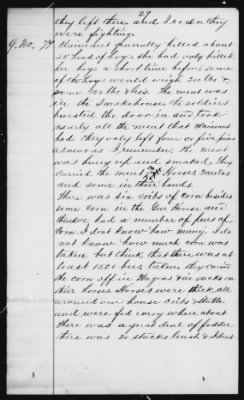 29
they left there and I seen they
were fighting.
J. No. 7th Claimant generally killed about
50 head of hogs, she had only killed
her hogs a short time before, some
of the hogs would weigh 200 lbs &
some 100 lbs less. The meat was
in the Smokehouse the soldiers
bursted the door in and took
nearly all the meat that claimant
had. They only left four or five pieces
as near as I remember, the meat
was hung up and smoked, they
carried the meat on Horses & mules
and some in their hands.
There was six cribs of corn besides
some corn in the Gin House and
had a number of pens of
Corn. I dont know how many. I do
not know how much corn was
taken but think that there was at
least 1500 bus taken, they carried
the corn off in Wagons & in sacks on
their horses. Horses were thick all
around our house cribs & stable
and were fed every where about
There was a great deal of fodder
there was 20 stacks, &